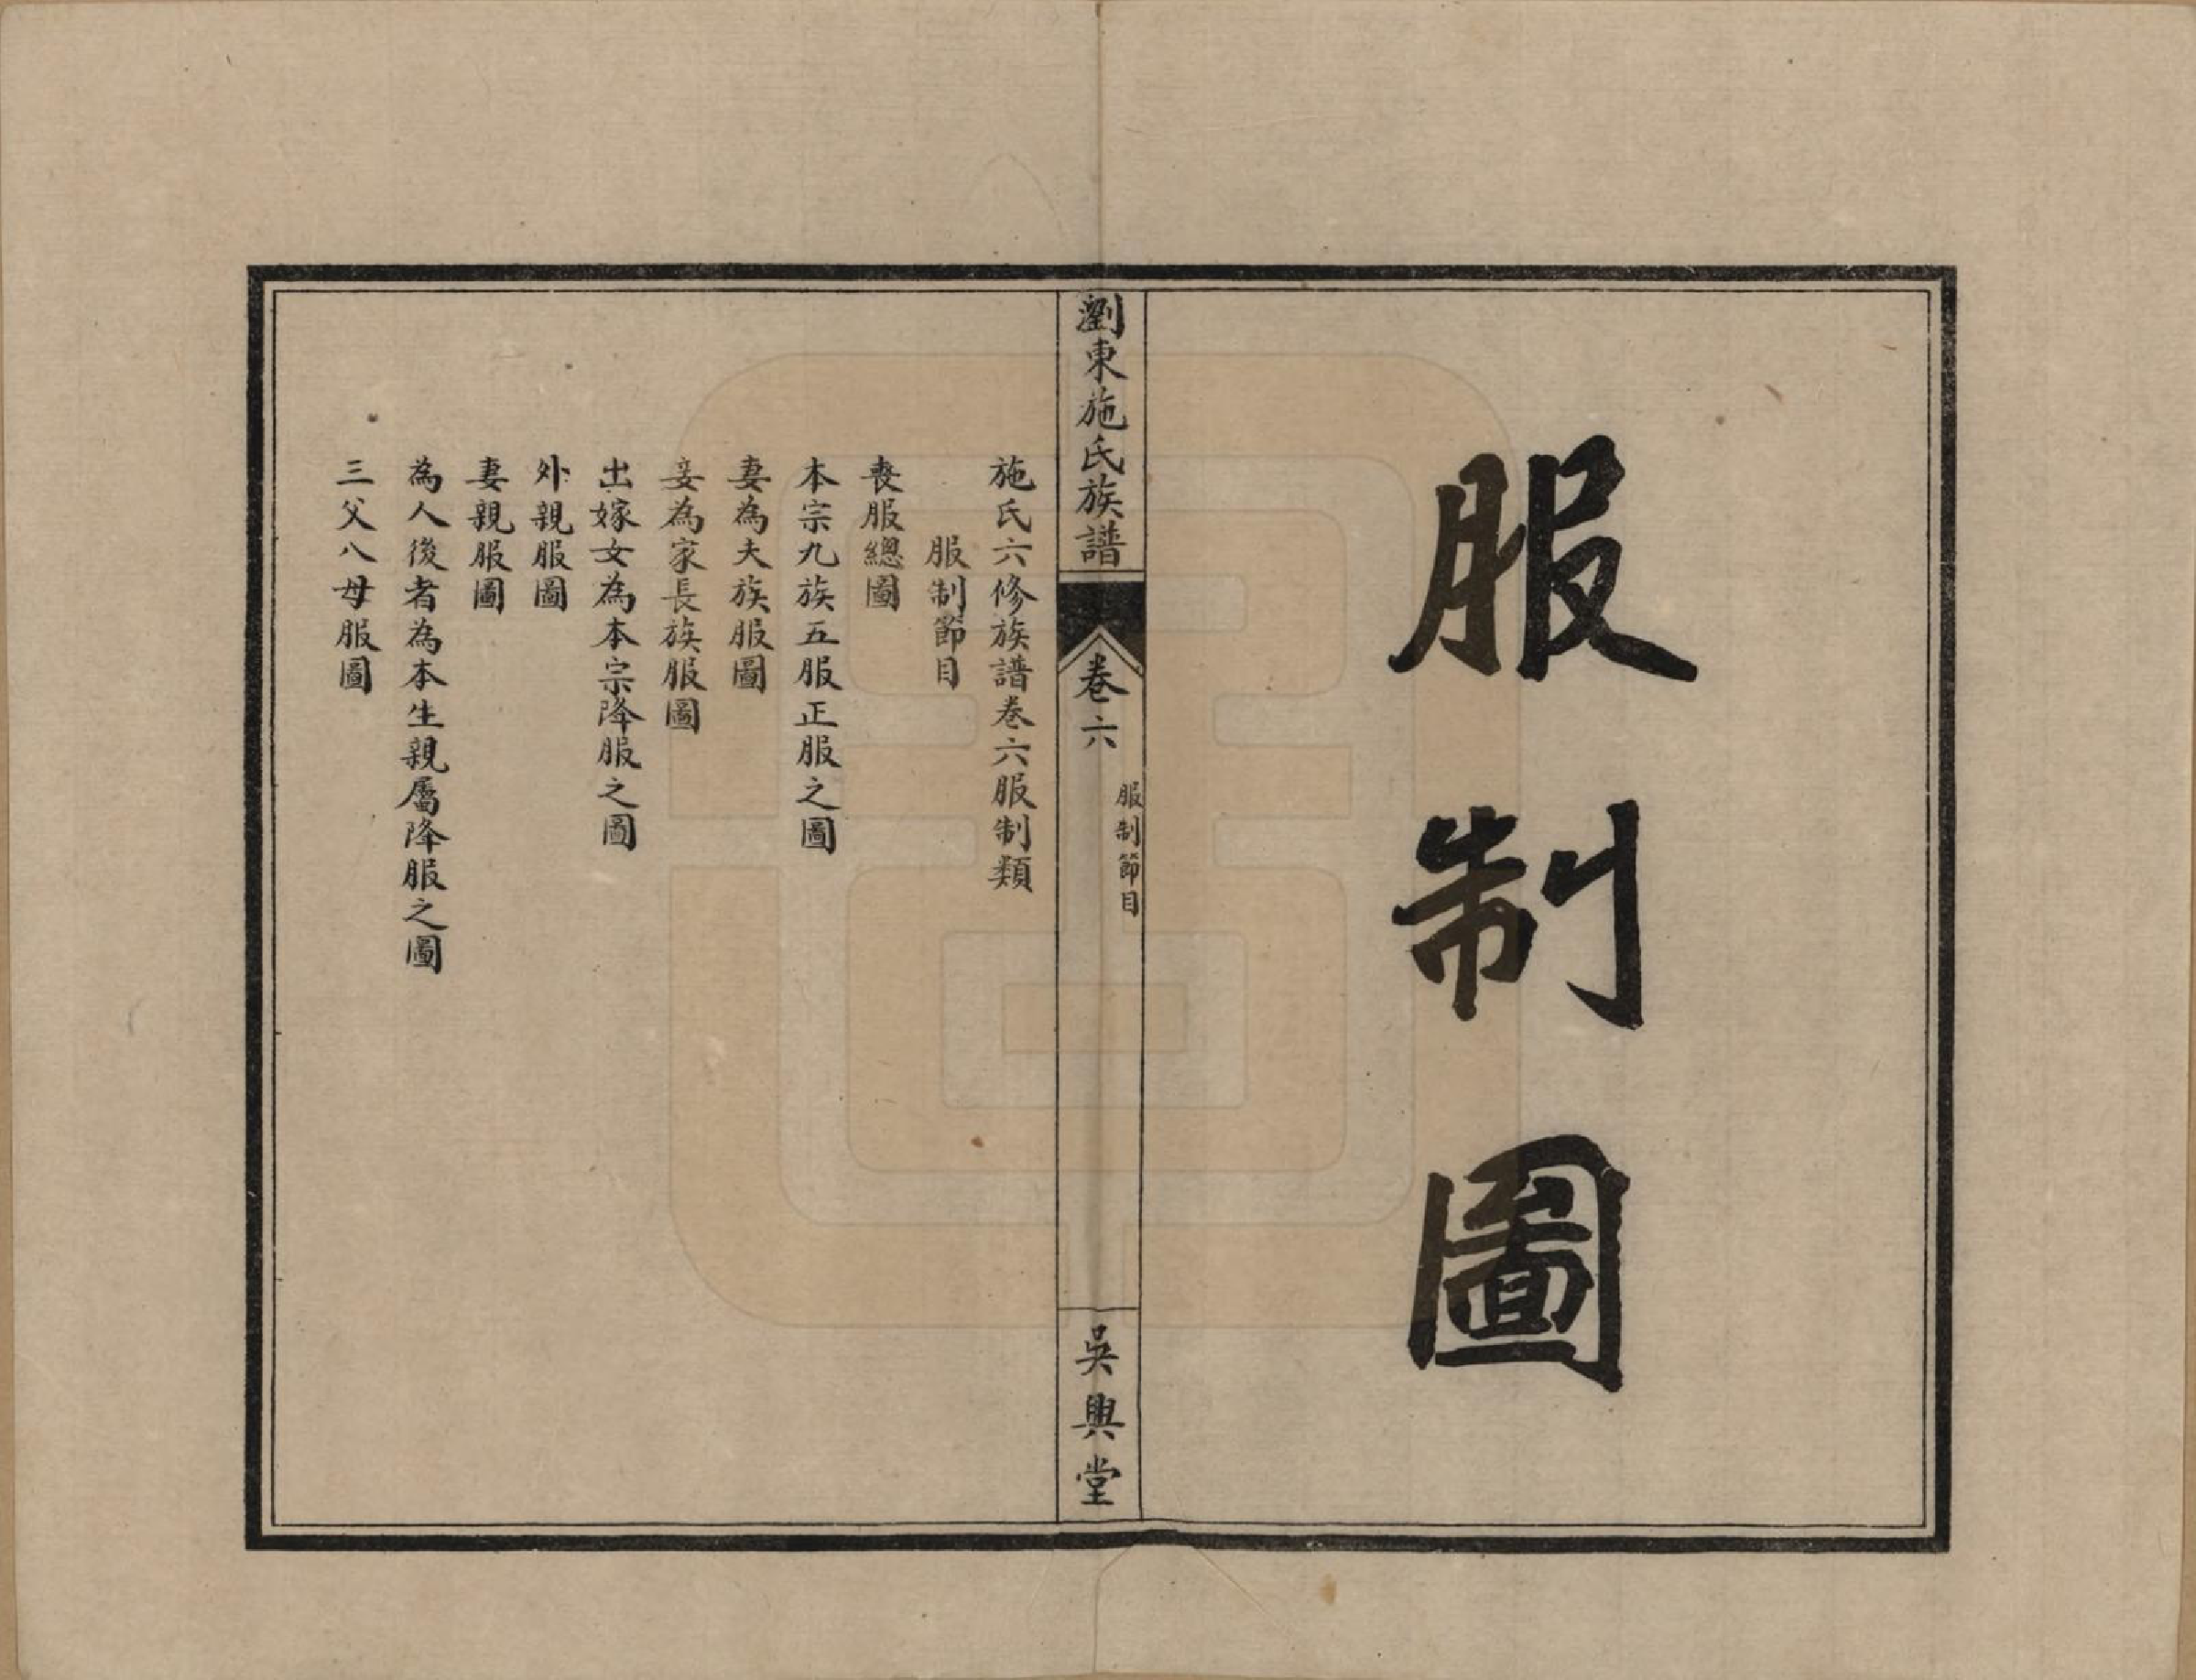 服制圖
瀏東施氏族譜
卷六
服制節目
吳興堂
施氏六修族譜卷六服制類
服制節目
喪服總圖
本宗九族五服正服之圖
妻為夫族服圖
妾為家長族服圖
出嫁女為本宗降服之圖
外親服圖
妻親服圖
為人後者為本生親屬降服之圖
三父八母服圖